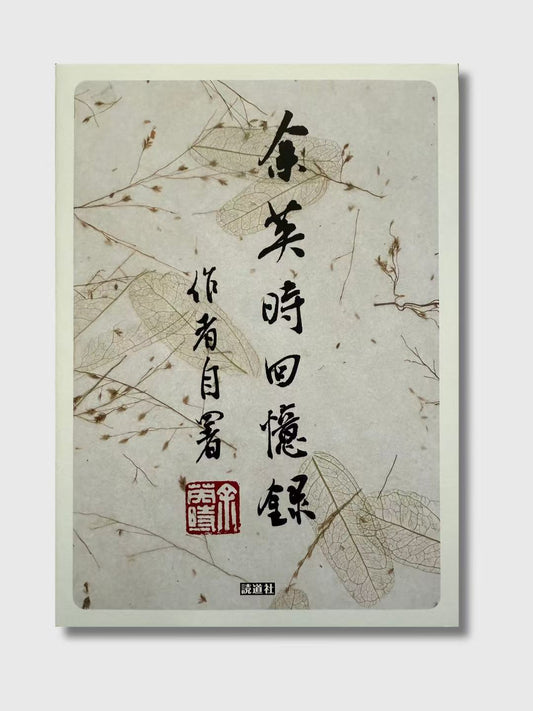 余英時回憶錄
作者自署
余英時
読道社